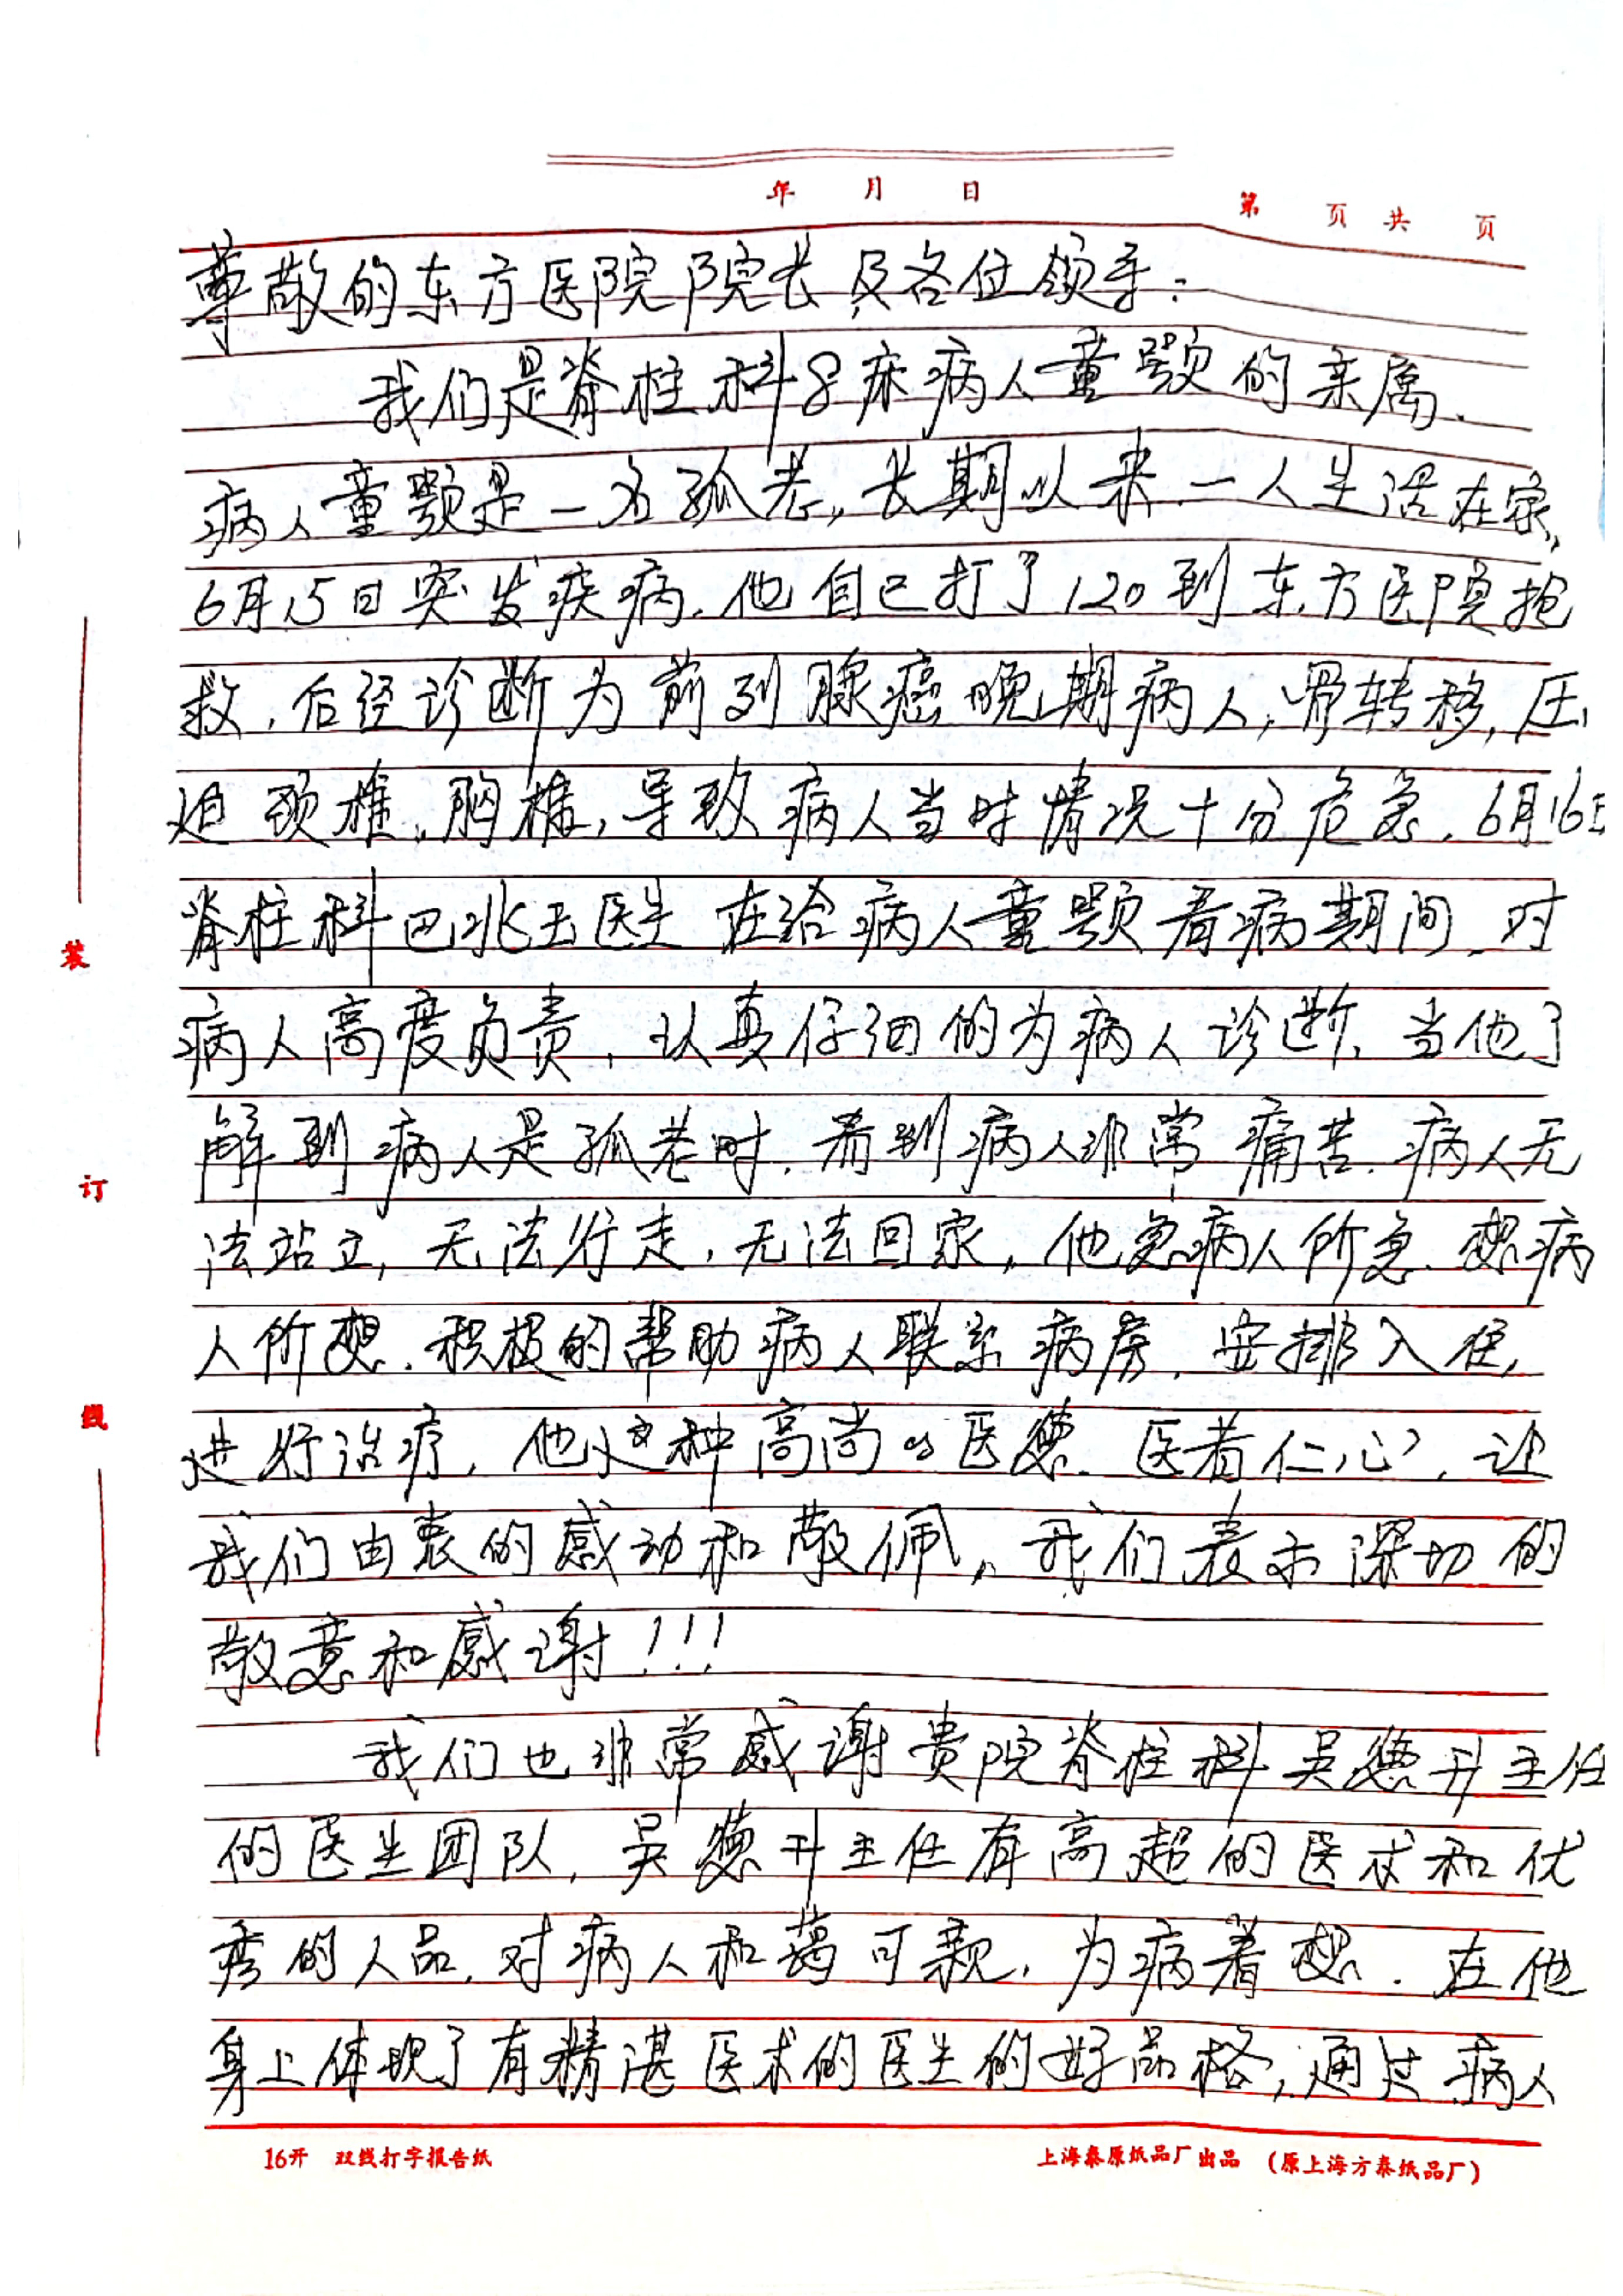 年 月 日
第 页 共 页
尊敬的东方医院院长及各位领导:
我们是脊柱科8床病人童颚的亲属.
病人童颚是一名孤老,长期以来一人生活在家,
6月15日突发疾病.他自己打了120到东方医院抢
救.后经诊断为前列腺癌晚期病人,骨转移,压
迫颈椎,胸椎,导致病人当时情况十分危急.6月16日
脊柱科巴兆玉医生在给病人童颚看病期间.对
病人高度负责,认真仔细的为病人诊断.当他了
解到病人是孤老时.看到病人非常痛苦.病人无
法站立,无法行走,无法回家,他急病人所急.想病
人所想.积极的帮助病人联系病房.安排入住,
进行治疗,他这种高尚的医德.医者仁心,让
我们由衷的感动和敬佩,我们表示深切的
敬意和感谢!!!
我们也非常感谢贵院脊柱科吴德升主任
的医生团队,吴德升主任有高超的医术和优
秀的人品.对病人和蔼可亲,为病着想.在他
身上体现了有精湛医术的医生的好品格,通过病人
装
订
线
16开 双线打字报告纸
上海泰原纸品厂出品 (原上海方泰纸品厂)